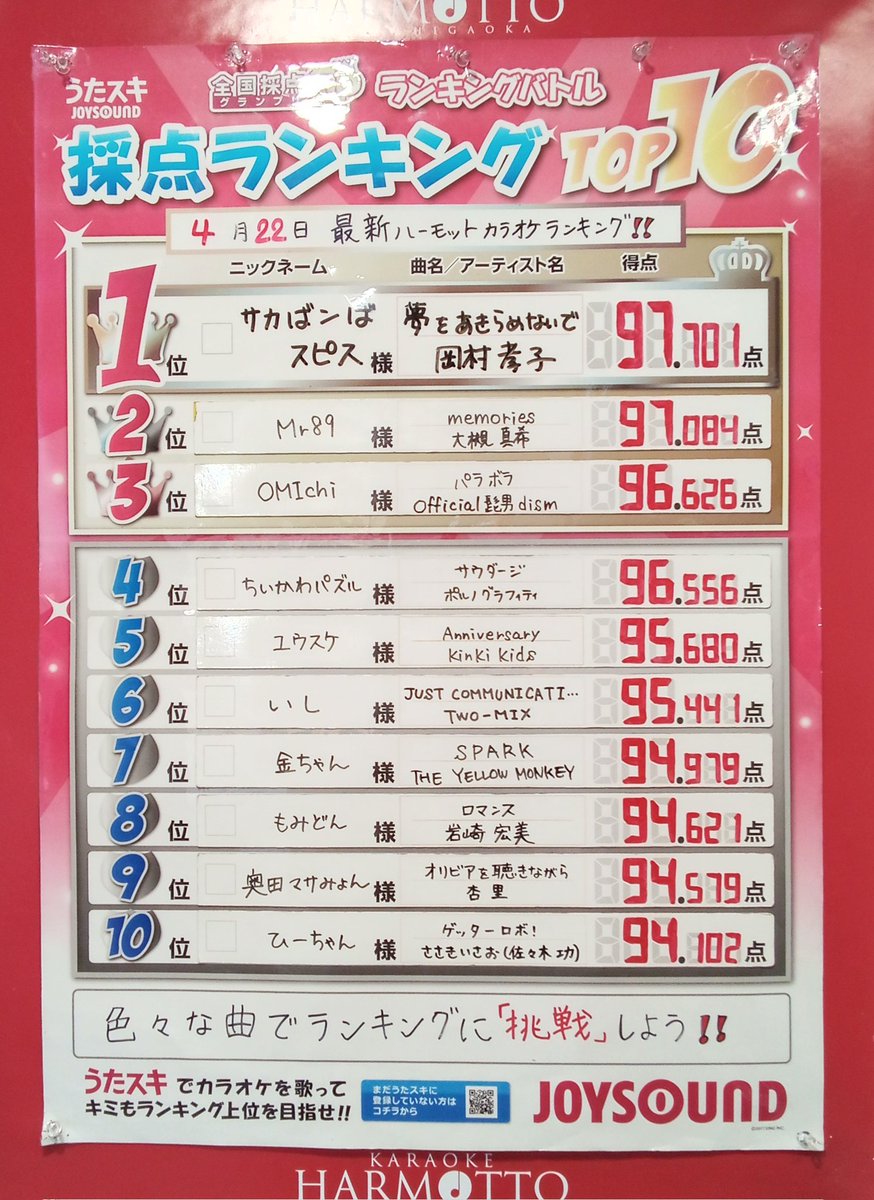 HARMOTTO
HIGAOKA
うたスキ
JOYSOUND
全国採点
グランプ
ランキングバトル
採点ランキング TOP10
4月22日 最新ハーモットカラオケランキング!!
ニックネーム 曲名/アーティスト名 得点
1位 サカばンば スピス 様 夢をあきらめないで 岡村孝子 97.701点
2位 Mr89 様 memories 大槻真希 97.084点
3位 OMIchi 様 パラボラ Official髭男dism 96.626点
4位 ちいかわパズル 様 サウダージ ポルノグラフィティ 96.556点
5位 ユウスケ 様 Anniversary KinKi Kids 95.680点
6位 いし 様 JUST COMMUNICATI… TWO-MIX 95.441点
7位 金ちゃん 様 SPARK THE YELLOW MONKEY 94.979点
8位 もみどん 様 ロマンス 岩崎宏美 94.621点
9位 奥田マサみょん 様 オリビアを聴きながら 杏里 94.579点
10位 ひーちゃん 様 ゲッターロボ! ささきいさお(佐々木功) 94.102点
色々な曲でランキングに「挑戦」しよう!!
うたスキでカラオケを歌って
キミもランキング上位を目指せ!!
まだうたスキに
登録していない方は
コチラから
JOYSOUND
KARAOKE
HARMOTTO